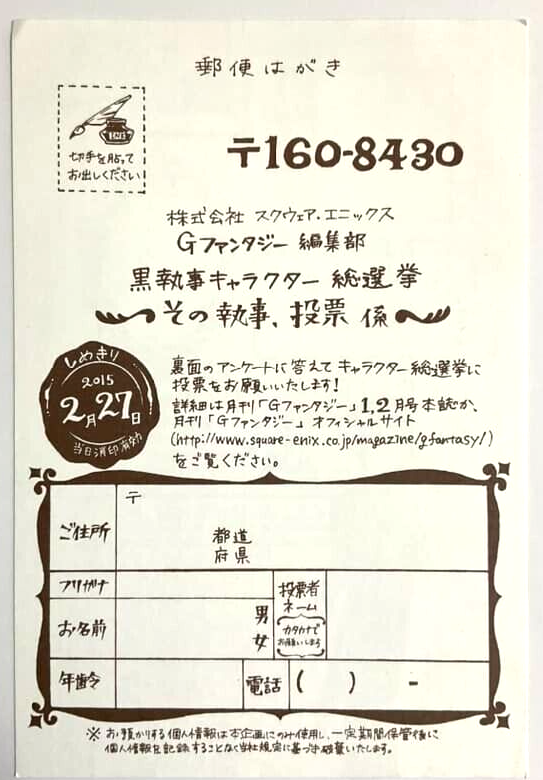 郵便はがき
切手を貼って
お出しください
〒160-8430
株式会社 スクウェア・エニックス
Gファンタジー 編集部
黒執事キャラクター 総選挙
その執事、投票 係
しめきり
2015
2月27日
当日消印有効
裏面のアンケートに答えてキャラクター総選挙に
投票をお願いいたします!
詳細は月刊「Gファンタジー」1,2月号本誌か、
月刊「Gファンタジー」オフィシャルサイト
(http://www.square-enix.co.jp/magazine/gfantasy/)
をご覧ください。
〒
ご住所
都道
府県
フリガナ
お名前
男
女
投票者
ネーム
カタカナで
お願いします
年齢
電話
( ) -
※お預かりする個人情報は本企画にのみ使用し、一定期間保管後に
個人情報を記録することなく当社規定に基づき破棄いたします。